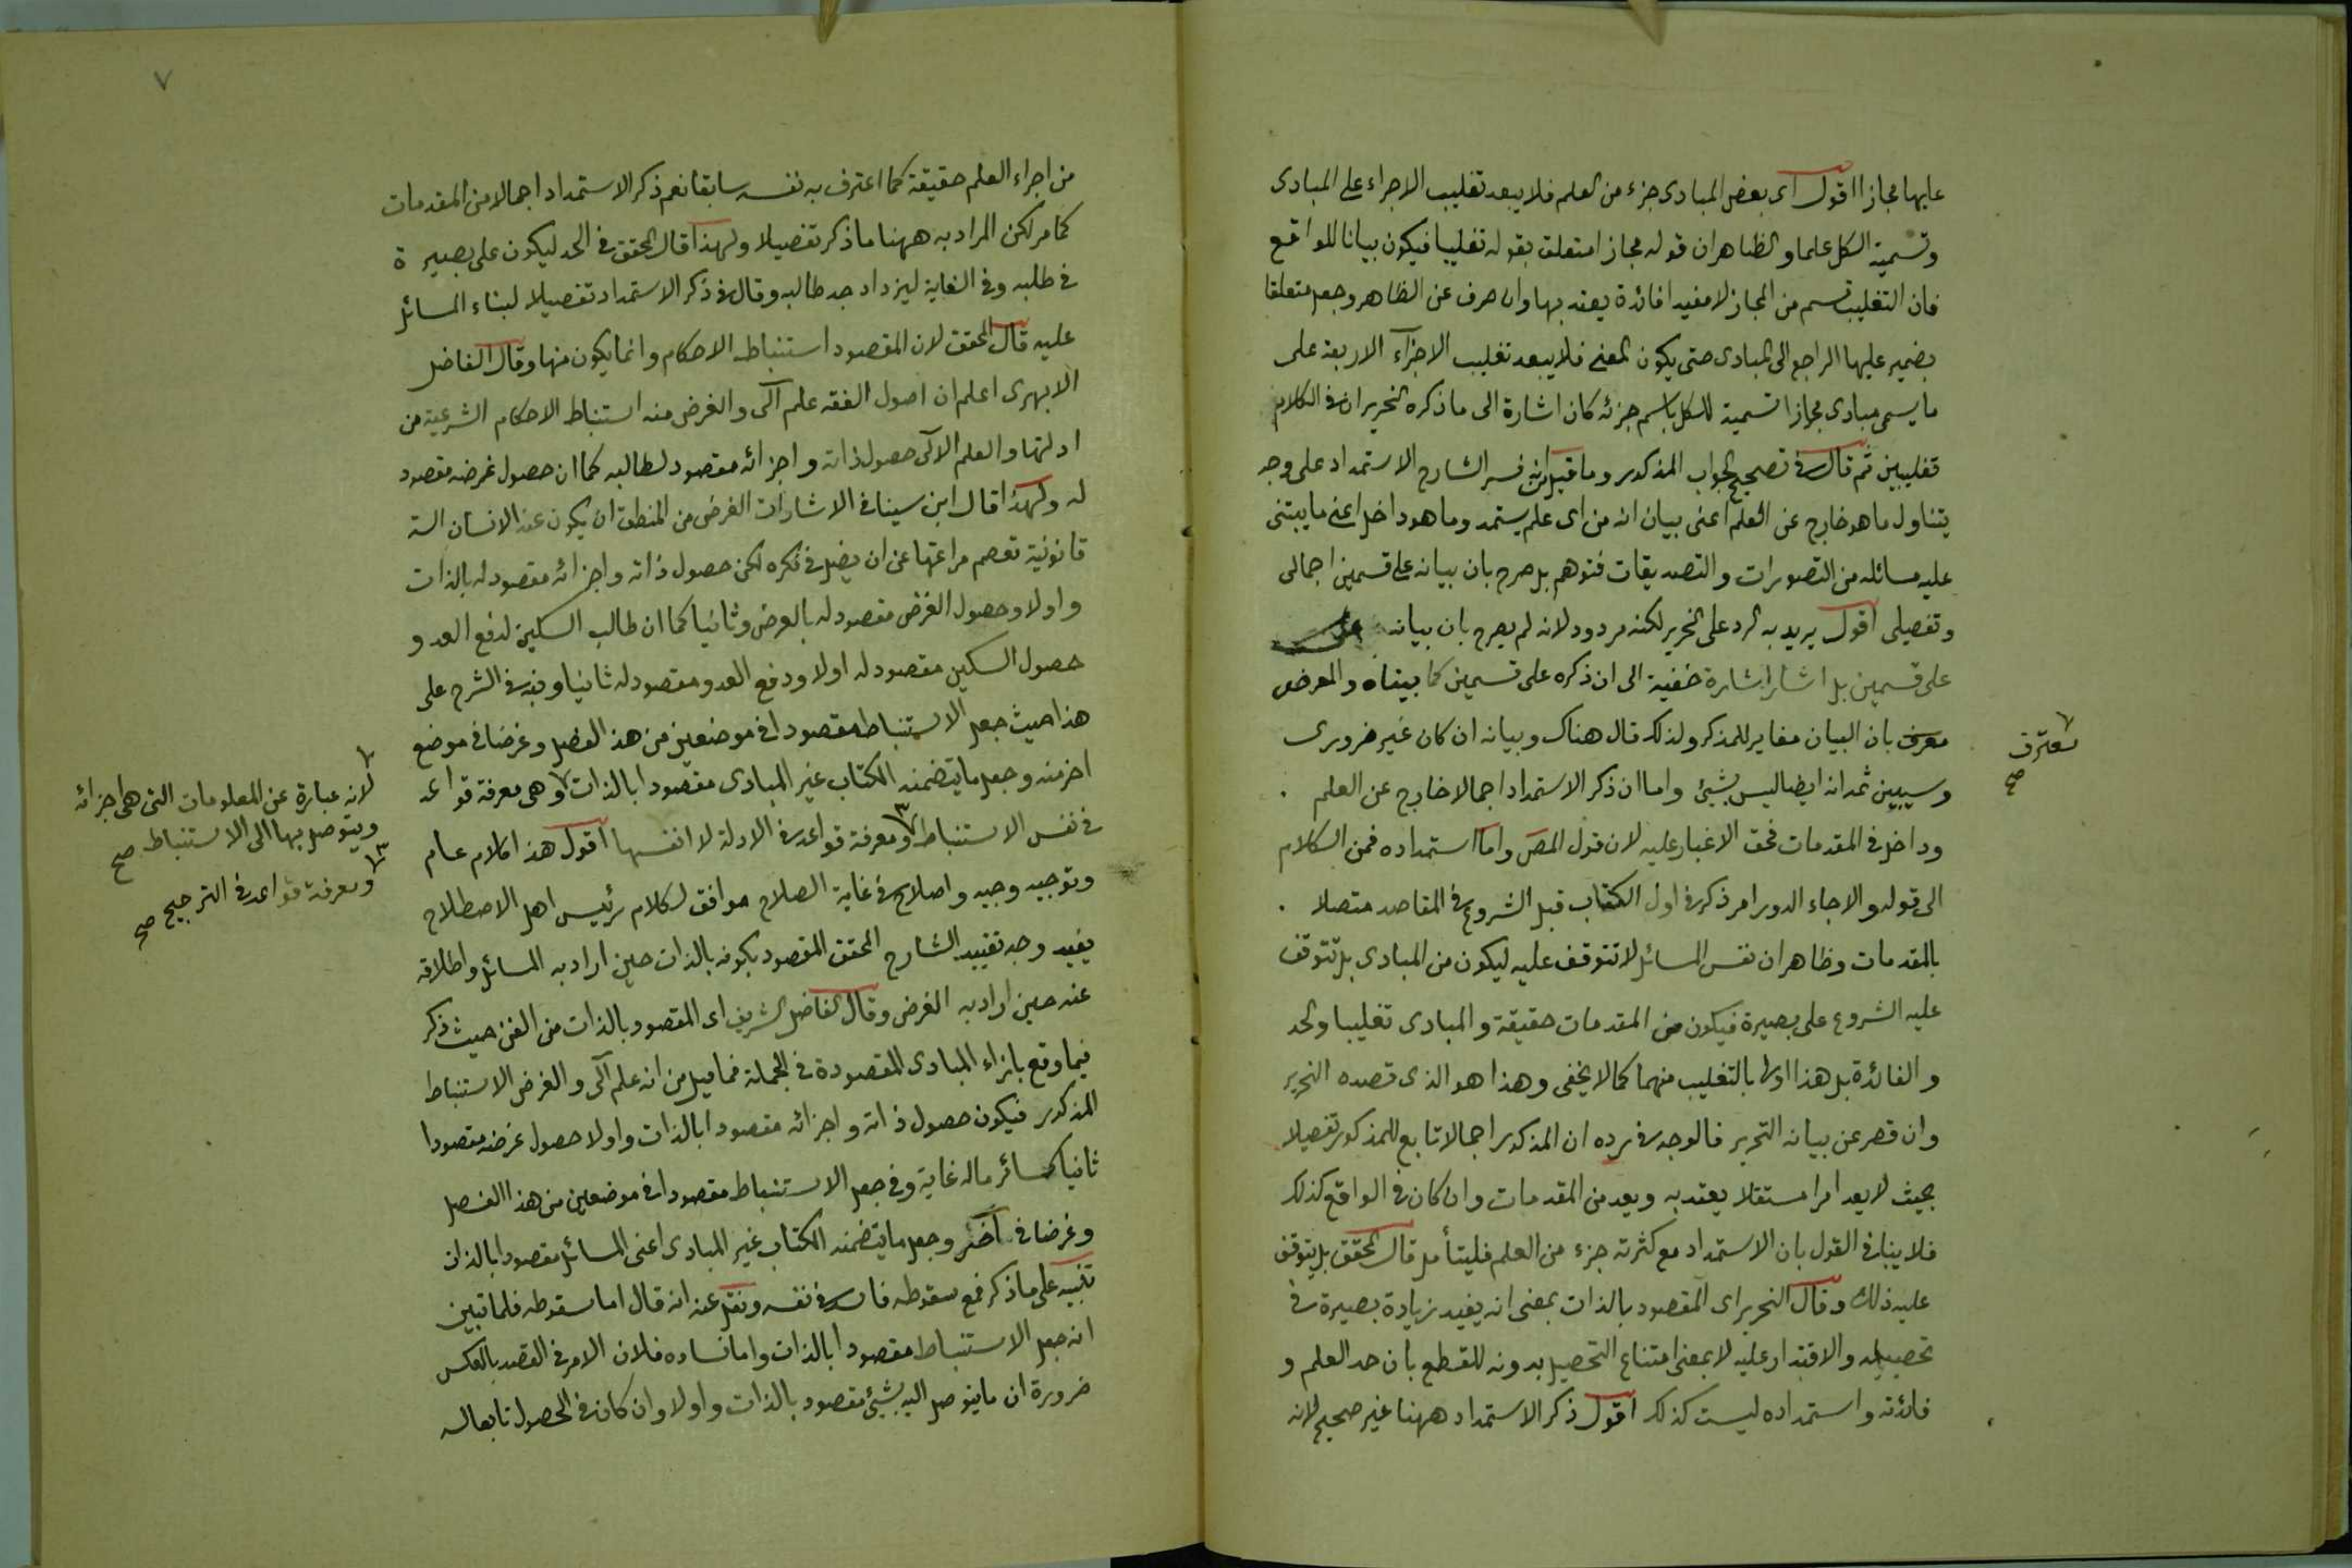 عليها مجازا اقول اى بعض المبادى جزء من العلم فلا يبعد تغليب الاجراء على المبادى
وتسمية الكل علما والظاهر ان قوله مجازا متعلق بقوله تغليبا فيكون بيانا للواقع
فان التغليب قسم من المجاز لا مفيدا فائدة يعتد بها وان صرف عن الظاهر وجعل متعلقا
بضمير عليها الراجع الى المبادى حتى يكون المعنى فلا يبعد تغليب الاجزآء الاربعة على
ما يسمى مبادى مجازا تسمية للكل باسم جزئه كان اشارة الى ما ذكره النحرير ان فى الكلام
تغليبين ثم قال فى تصحيح الجواب المذكور وما قيل انه فسر الشارح الاستمداد على وجه
يتناول ما هو خارج عن العلم اعنى بيان انه من اى علم يستمد وما هو داخل اعنى ما يبتنى
عليه مسائله من التصورات والتصديقات فتوهم بل صرح بان بيانه على قسمين اجمالى
وتفصيلى اقول يريد به الرد على النحرير لكنه مردود لانه لم يصرح بان بيانه
على قسمين بل اشار اشارة خفية الى ان ذكره على قسمين كما بيناه والمعرض
معرف بان البيان مغاير للمذكر ولذلك قال هناك وبيانه ان كان غير ضرورى
يعترف صح
وسيبين ثمه انه ايضا ليس بشئ واما ان ذكر الاستمداد اجمالا خارج عن العلم
وداخل فى المقدمات فحق لا غبار عليه لان قول المص واما استمداده فمن الكلام
الى قوله والا جاء الدور امر ذكر فى اول الكتاب قبل الشروع فى المقاصد متصلا
بالمقدمات وظاهر ان نفس المسائل لا تتوقف عليه ليكون من المبادى بل تتوقف
عليه الشروع على بصيرة فيكون من المقدمات حقيقة والمبادى تغليبا والحد
والفائدة بل هذا اولى بالتغليب منهما كما لا يخفى وهذا هو الذى قصده النحرير
وان قصر عن بيانه التحرير فالوجه فى رده ان المذكور اجمالا تابع للمذكور تفصيلا
بحيث لا يعد امرا مستقلا يعتد به ويعد من المقدمات وان كان فى الواقع كذلك
فلا ينافى القول بان الاستمداد مع كثرته جزء من العلم فليتأمل قال المحقق بل يتوقف
عليه ذلك وقال النحرير اى المقصود بالذات بمعنى انه يفيد زيادة بصيرة فى
تحصيله والاقتدار عليه لا بمعنى امتناع التحصيل بدونه للقطع بان حد العلم و
فائدته واستمداده ليست كذلك اقول ذكر الاستمداد ههنا غير صحيح لانه
٧
من اجراء العلم حقيقة كما اعترف به نفسه سابقا نعم ذكر الاستمداد اجمالا من المقدمات
كما مر لكن المراد به ههنا ما ذكر تفصيلا ولهذا قال المحقق فى الحد ليكون على بصيرة
فى طلبه وفى الغاية ليزداد جد طالبه وقال فى ذكر الاستمداد تفصيلا لبناء المسائل
عليه قال المحقق لان المقصود استنباط الاحكام وانما يكون منها وقال الفاضل
الابهرى اعلم ان اصول الفقه علم آلى والغرض منه استنباط الاحكام الشرعية من
ادلتها والعلم الآلى حصول ذاته واجزائه مقصود لطالبه كما ان حصول غرضه مقصود
له ولهذا قال ابن سينا فى الاشارات الغرض من المنطق ان يكون عند الانسان الة
قانونية تعصم مراعتها عن ان يضل فى فكره لكن حصول ذاته واجزائه مقصود له بالذات
واولا وحصول الغرض مقصود له بالعرض وثانيا كما ان طالب السكين لدفع العدو
حصول السكين مقصود له اولا ودفع العدو مقصود له ثانيا ونبه فى الشرح على
هذا حيث جعل الاستنباط مقصودا فى موضعين من هذا الفصل وغرضا فى موضع
اخر منه وجعل ما يتضمنه الكتاب غير المبادى مقصودا بالذات وهى معرفة قواعد
فى نفس الاستنباط ٣ ومعرفة قواعد فى الادلة لا انفسها اقول هذا كلام عام
وتوجيه وجيه واصلاح فى غاية الصلاح موافق لكلام رئيس اهل الاصطلاح
يفيد وجه تقييد الشارح المحقق المقصود بكونه بالذات حين اراد به المسائل واطلاقه
عنه حين اراد به الغرض وقال الفاضل الشريف اى المقصود بالذات من الفن حيث ذكر
فيما وقع بازاء المبادى المقصودة فى الجملة فما قيل من انه علم آلى والغرض الاستنباط
المذكور فيكون حصول ذاته واجزائه مقصودا بالذات واولا حصول غرضه مقصودا
ثانيا كسائر ماله غاية وفى جعل الاستنباط مقصودا فى موضعين من هذا الفصل
وغرضا فى آخر وجعل ما يتضمنه الكتاب غير المبادى اعنى المسائل مقصودا بالذات
تنبيه على ما ذكر فمع سقوطه فاسد فى نفسه ونقل عنه انه قال اما سقوطه فلما تبين
انه جعل الاستنباط مقصودا بالذات واما فساده فلان الامر فى القصد بالعكس
ضرورة ان ما يتوصل اليه بشئ مقصود بالذات واولا وان كان فى الحصول تابعا له
لانه عبارة عن المعلومات التى هى اجزائه
ويتوصل بها الى الاستنباط صح
٣ ومعرفة قواعد فى الترجيح صح